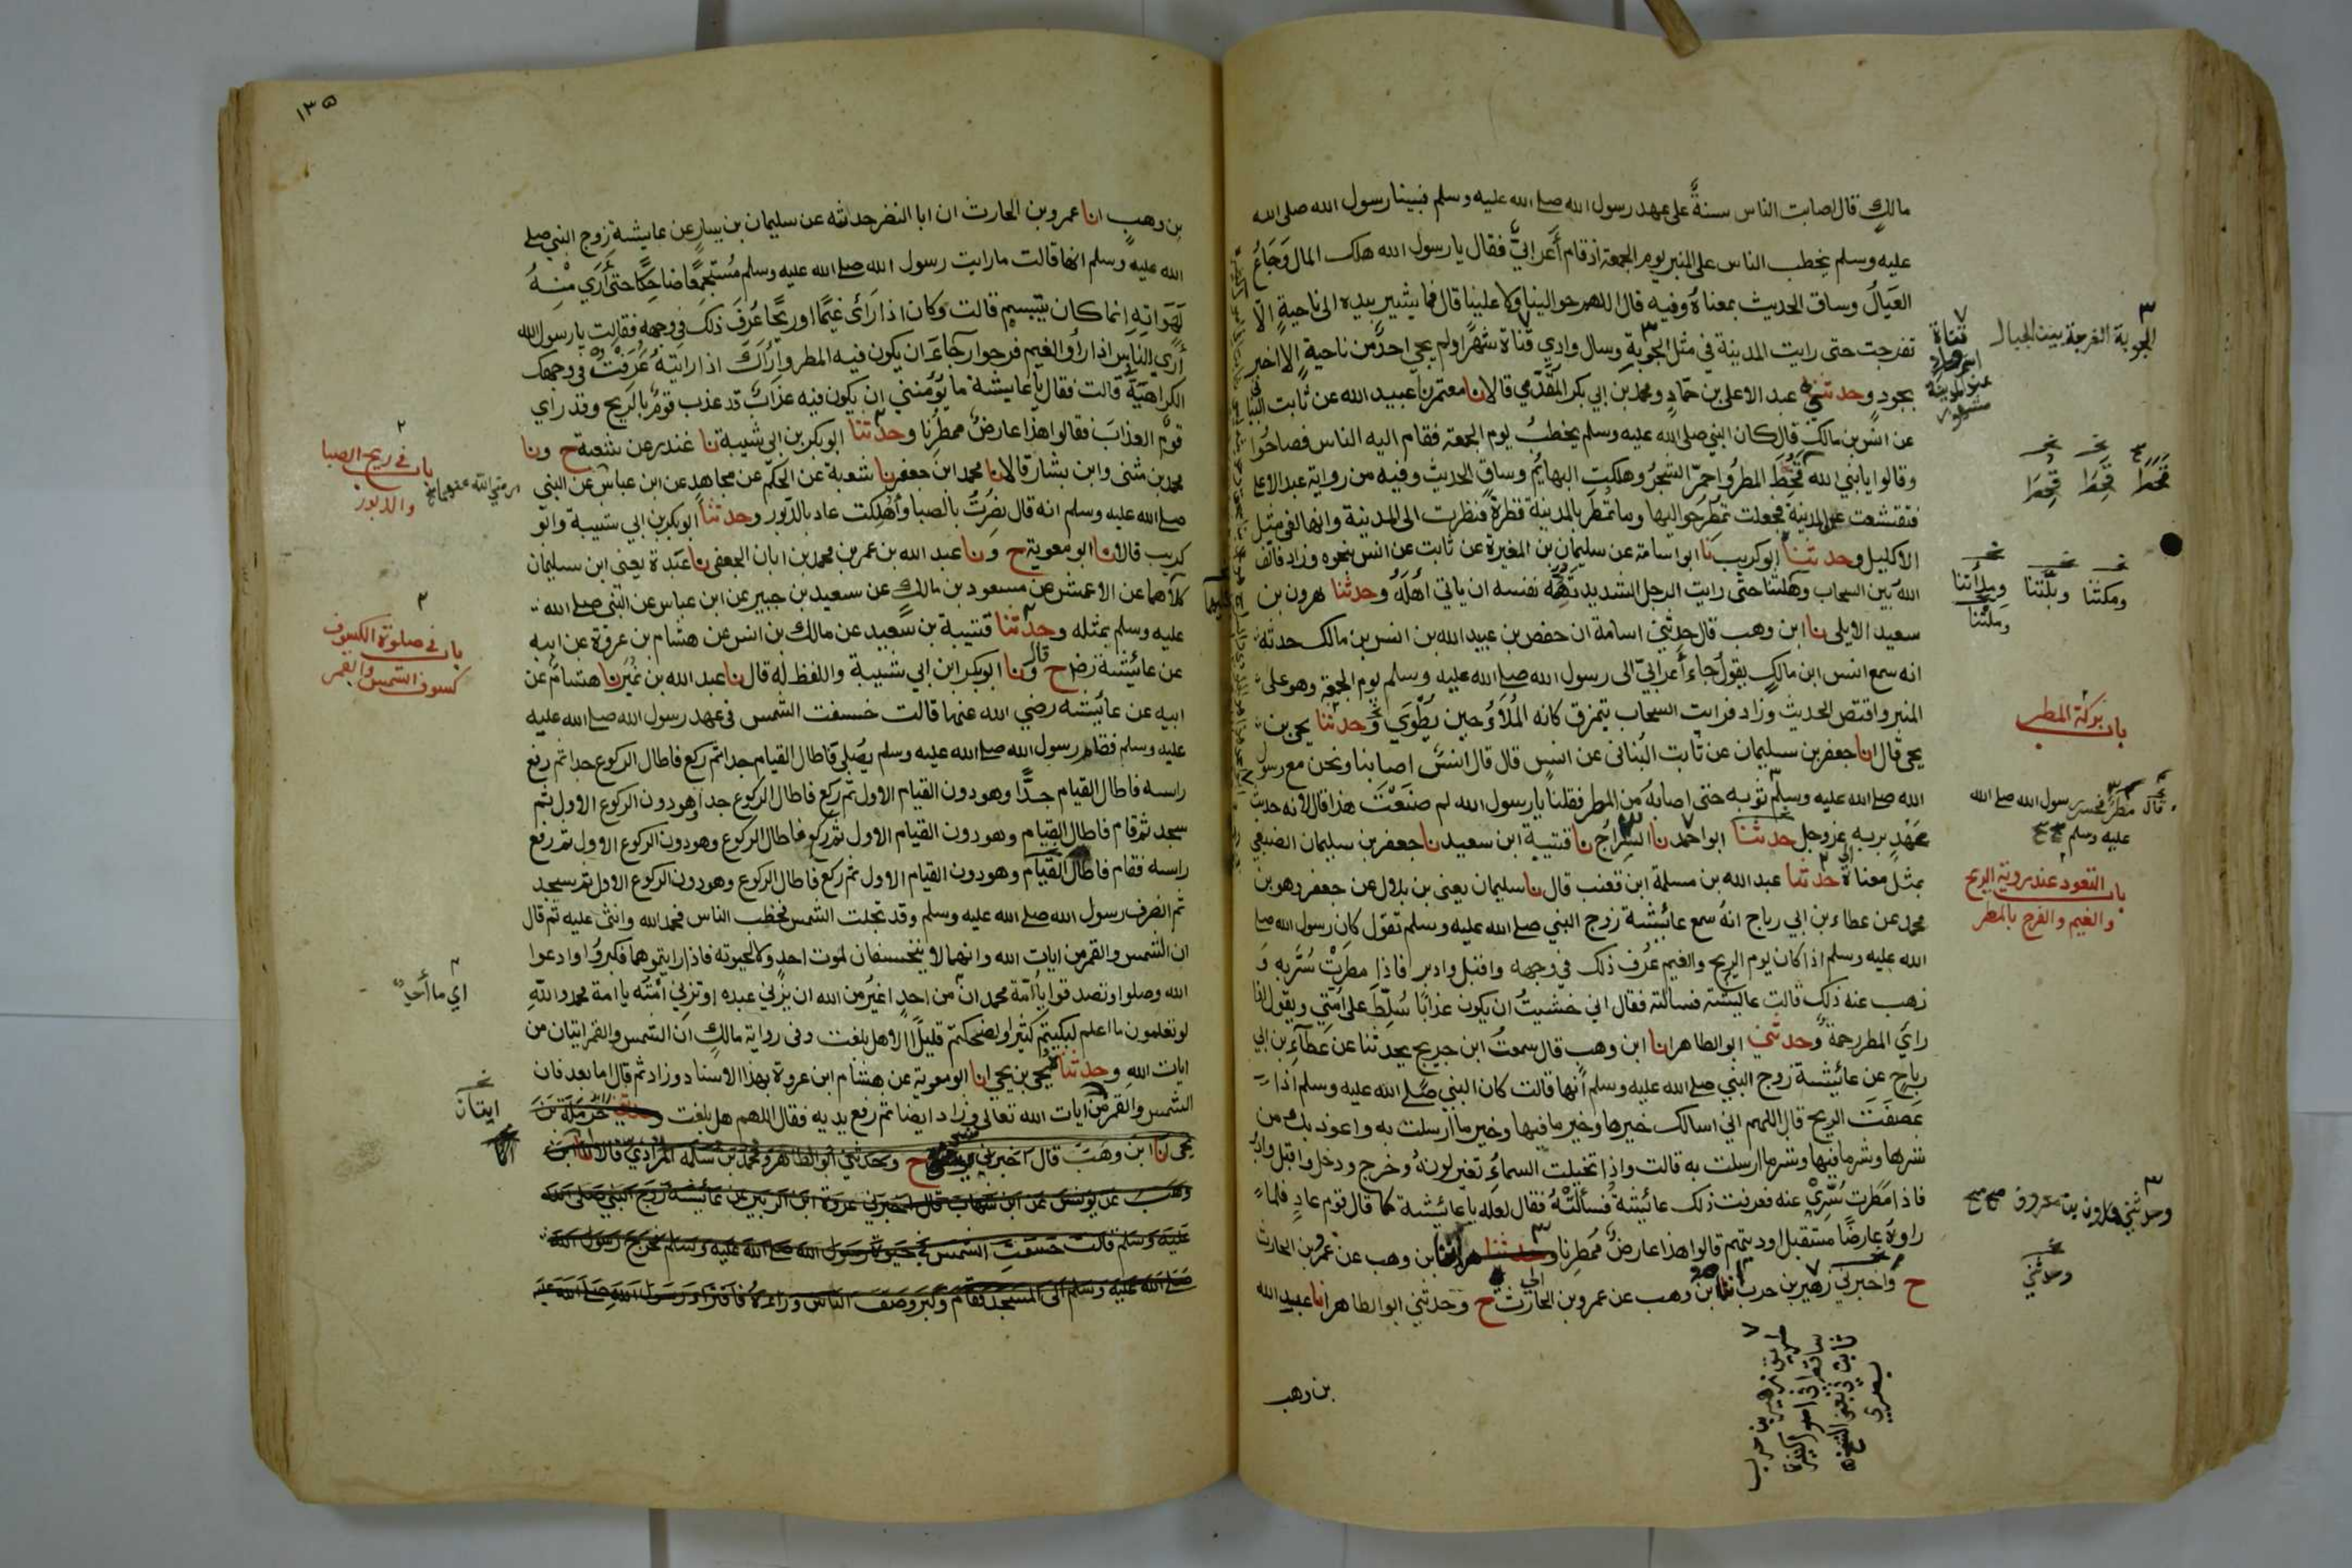 مالكٍ قال اصابت الناس سنةٌ على عهد رسول الله صلى الله عليه وسلم فبينا رسول الله صلى الله
عليه وسلم يخطب الناس على المنبر يوم الجمعة اذ قام أَعرابيٌّ فقال يا رسول الله هلك المال وَجَاعَ
العَيالُ وساق الحديث بمعناهُ وفيه قال اللهم حوالينا ولا علينا قال فما يشير بيده الى ناحيةٍ الّا
تفرجت حتى رايت المدينة في مثل الجَوبةِ وسال وادي قناة شهرًا ولم يجي احدٌ من ناحية الا اخبر
بجودٍ وحدثني عبد الاعلى بن حمّادٍ ومحمد بن ابي بكر المقدّمي قالا نا معتمر نا عبيد الله عن ثابت البناني
عن انس بن مالك قال كان النبي صلى الله عليه وسلم يخطبُ يوم الجمعة فقام اليه الناس فصاحُوا
وقالوا يا نبي الله قُحِطَ المطرُ واحمرّ الشجرُ وهلكتِ البهايمُ وساق الحديث وفيه من رواية عبد الاعلى
فتقشعت عن المدينة فجعلت تمطرُ حواليها وما تمطر بالمدينة قطرةً فنظرت الى المدينة وانها لفي مثل
الاكليل وحدثنا ابو كريب نا ابو اسامة عن سليمان بن المغيرة عن ثابت عن انس بنحوه وزاد فالف
الله بين السحاب وهلتنا حتى رايت الرجل الشديد تهمه نفسه ان ياتي أهله وحدثنا هرون بن
سعيد الايلي نا ابن وهب قال حدثني اسامة ان حفص بن عبيد الله بن انس بن مالك حدثه
انه سمع انس ابن مالكٍ يقول جاء أعرابيّ الى رسول الله صلى الله عليه وسلم يوم الجمعة وهو على
المنبر واقتص الحديث وزاد فرايت السحاب يتمزق كانه المُلَاءُ حين يُطْوَي وحدثنا يحيى بن
يحيى قال انا جعفر بن سليمان عن ثابت البُناني عن انس قال قال انسٌ اصابنا ونحن مع رسول
الله صلى الله عليه وسلم ثوبه حتى اصابه من المطر فقلنا يا رسول الله لم صنعت هذا قال لانه حديث
عَهْدٍ بربه عز وجل حدثنا ابو احمد نا السراج نا قتيبة ابن سعيد نا جعفر بن سليمان الضبعي
بمثل معناهُ حدثنا عبد الله بن مسلمة ابن قعنب قال نا سليمان يعني بن بلال عن جعفر وهو بن
محمد عن عطاء بن ابي رباح انهُ سمع عائيشة زوج النبي صلى الله عليه وسلم تقول كان رسول الله صلى
الله عليه وسلم اذا كان يوم الريح والغيم عُرف ذلك في وجهه واقبل وادبر فاذا مطرتْ سُرّ به وَ
ذهب عنه ذلك قالت عايشة فسالته فقال اني خشيتُ ان يكون عذابًا سُلّط على اُمّتي ويقول اذا
رايَ المطر رحمةٌ وحدثني ابو الطاهر انا ابن وهب قال سمعتُ ابن جريج يحدثنا عن عطآءِ بن ابي
رباحٍ عن عائيشة زوج النبي صلى الله عليه وسلم أنها قالت كان النبي صلى الله عليه وسلم اذا
عَصفَتِ الريح قال اللهم اني اسالك خيرها وخير ما فيها وخير ما ارسلت به واعوذ بك من
شرها وشر ما فيها وشر ما ارسلت به قالت واذا تخيلت السماءُ تغير لونهُ وخرج ودخل واقبل وادبر
فاذا مَطَرت سُرّيَ عنه فعرفت ذلك عائيشة فسألَتْهُ فقال لعله يا عائيشة كما قال قوم عادٍ فلما
راوهُ عارضًا مستقبل اوديتهم قالوا هذا عارضٌ مُمطِرنا وحدثنا بن وهب عن عمرو بن الحارث
ح وأخبرني زهير بن حرب نا ابن وهب عن عمرو بن الحارث ح وحدثني ابو الطاهر انا عبد الله
بن وهب
الجوبة الفرجة بين الجبال
قناة
قَحَطَ قَحِطَ قُحِطَ
ومكثنا وبلّتنا
وملتنا
باب بركة المطر
قال مطرٌ فحسر رسول الله صلى الله
عليه وسلم صح صح
باب التعوذ عند روية الريح
والغيم والفرح بالمطر
وحدثني هارون بن معروف صح صح
وحدثني
طريق زهير بن حرب
١٣٥
بن وهبٍ انا عمرو بن الحارث ان ابا النضر حدثه عن سليمان بن يسارٍ عن عايشة زوج النبي صلى
الله عليه وسلم انها قالت ما رايت رسول الله صلى الله عليه وسلم مُستجمِعًا ضاحِكًا حتى أرَي مِنْهُ
لَهَواتِهِ انما كان يتبسم قالت وكان اذا رَأى غيمًا او ريحًا عُرِفَ ذلك في وجهه فقالت يا رسول الله
أرَي الناس اذا رأوا الغيم فرحوا رجاءَ ان يكون فيه المطر وأراكَ اذا رايته عَرَفتُ في وجهك
الكراهيَة قالت فقال يا عايشة ما يؤمنني ان يكون فيه عذابٌ قد عذب قومٌ بالريح وقد راي
قومٌ العذابَ فقالوا هذا عارضٌ ممطرنا وحدثنا ابو بكر بن ابي شيبة نا غندر عن شعبة ح ونا
محمد بن مثنى وابن بشار قالا نا محمد ابن جعفر نا شعبة عن الحكم عن مجاهدٍ عن ابن عباس عن النبي
صلى الله عليه وسلم انه قال نُصِرتُ بالصبا وأُهلِكت عاد بالدّبور وحدثنا ابو بكر بن ابي شيبة وابو
كريب قالا نا ابو معوية ح ونا عبد الله بن عمر بن محمد بن ابان الجعفي نا عَبدة يعني ابن سليمان
كلاهما عن الاعمش عن مسعود بن مالكٍ عن سعيد بن جبير عن ابن عباس عن النبي صلى الله
عليه وسلم بمثله وحدثنا قتيبة بن سعيد عن مالك بن انس عن هشام بن عروة عن ابيه
عن عائيشة رضـ ح قال ونا ابو بكر ابن ابي شيبة واللفظ له قال نا عبد الله بن نُمَير نا هشامٌ عن
ابيه عن عائيشة رضي الله عنها قالت خسفت الشمس في عهد رسول الله صلى الله عليه
عليه وسلم فقام رسول الله صلى الله عليه وسلم يُصَلي فاطال القيام جدا ثم ركع فاطال الركوع جدا ثم رفع
راسه فاطال القيام جدًّا وهو دون القيام الاول ثم ركع فاطال الركوع جدا وهو دون الركوع الاول ثم
سجد ثم قام فاطال القيام وهو دون القيام الاول ثم ركع فاطال الركوع وهو دون الركوع الاول ثم رفع
راسه فقام فاطال القيام وهو دون القيام الاول ثم ركع فاطال الركوع وهو دون الركوع الاول ثم سجد
ثم انصرف رسول الله صلى الله عليه وسلم وقد تجلت الشمس فخطب الناس فحمد الله واثنى عليه ثم قال
ان الشمس والقمر من ايات الله وانهما لا ينخسفان لموت احدٍ ولا لحيوته فاذا رايتموهما فكبروُا وادعوا
الله وصلوا وتصدقوا يا اُمّة محمد انْ من احدٍ اغيرُ من الله ان يزني عبده او تزني امَتُه يا امة محمد واللهِ
لو تعلمون ما اعلم لبكيتم كثيرا ولضحكتم قليلًا الا هل بلغت وفي رواية مالكٍ ان الشمس والقمر ايتان من
ايات الله وحدثناه يحيى بن يحيى انا ابو معوية عن هشام ابن عروة بهذا الاسناد وزاد ثم قال اما بعد فان
الشمس والقمر من ايات الله تعالى وزاد ايضا ثم رفع يديه فقال اللهم هل بلغت وحدثني حرملة بن
يحيى نا ابن وهب قال اخبرني يونس ح وحدثني ابو الطاهر ومحمد بن سلمة المرادي قالا نا ابن
وهب عن يونس عن ابن شهاب قال اخبرني عروة ابن الزبير عن عائيشة زوج النبي صلى الله
عليه وسلم قالت خسفت الشمس في حيوة رسول الله صلى الله عليه وسلم فخرج رسول الله
صلى الله عليه وسلم الى المسجد فقام وكبر وصف الناس وراءه فاقترا رسول الله صلى الله عليه
باب في ريح الصبا
والدبور
رضي الله عنهما
باب في صلوة الكسوف
كسوف الشمس والقمر
اي ما أحدٌ
ايتان